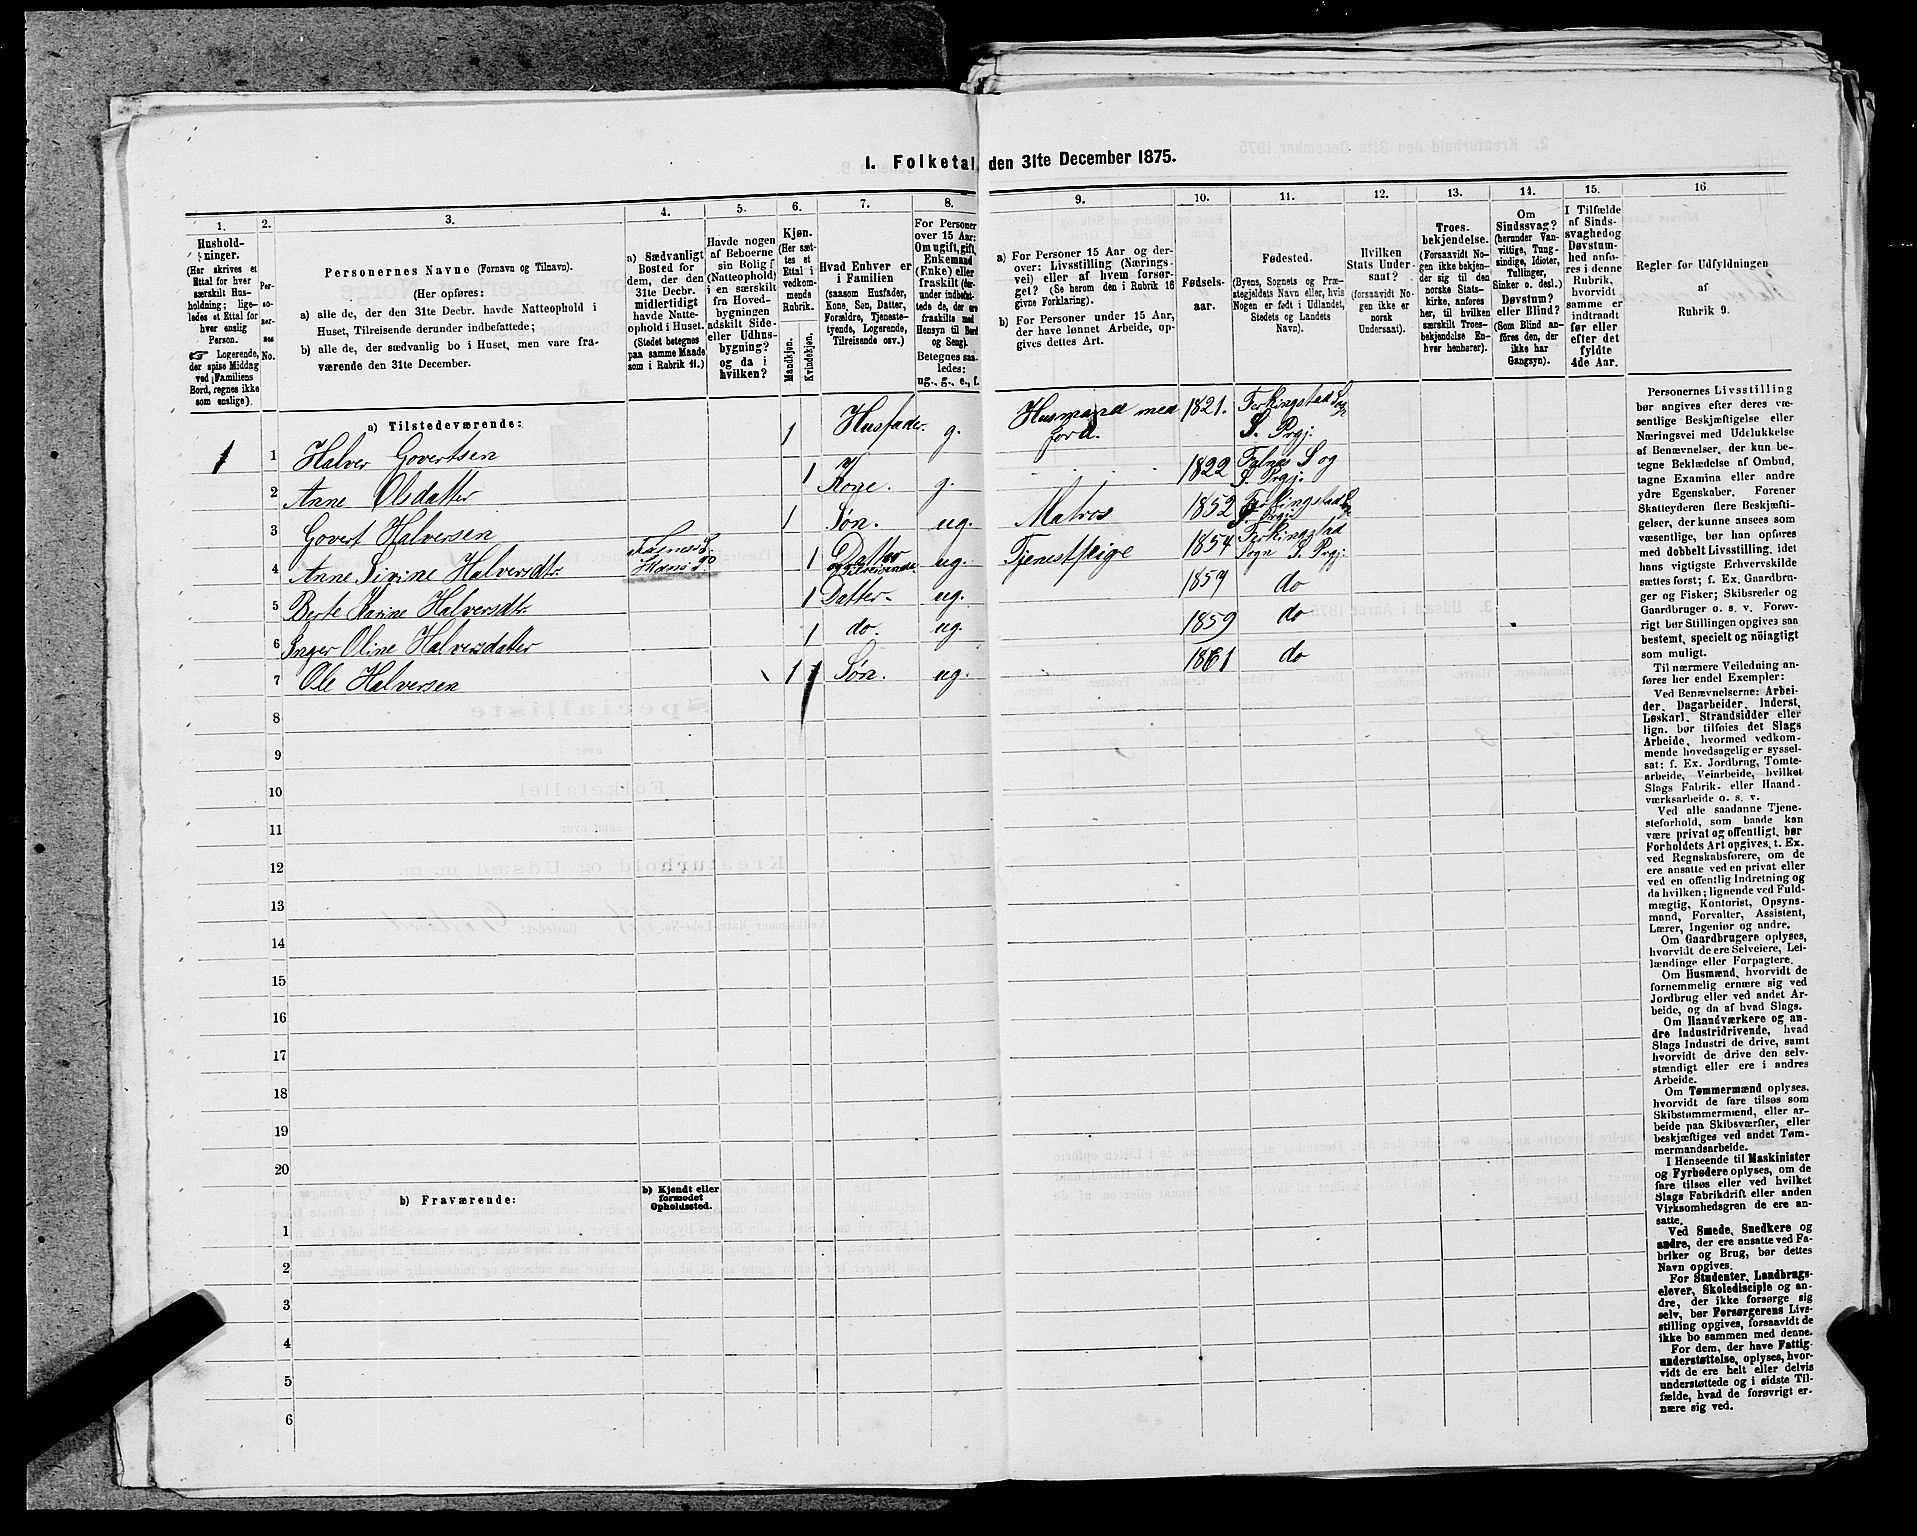 I. Folketal den 31te December 1875.
1. 2. 3. 4. 5. 6. 7. 8. 9. 10. 11. 12. 13. 14. 15. 16
Hushold-
ninger.
(Her skrives et
Ettal for hver
særskilt Hus-
holdning; lige-
ledes et Ettal for
hver enslig
Person.
Logerende,
der spise Middag
ved Familiens
Bord, regnes ikke
som enslige).
Personernes No.
Personernes Navne (Fornavn og Tilnavn).
(Her opføres:
a) alle de, der den 31te Decbr. havde Natteophold i
Huset, Tilreisende derunder indbefattede;
b) alle de, der sædvanlig bo i Huset, men vare fra-
værende den 31te December.
a) Sædvanligt
Bosted for
dem, der den
31te Decbr.
midlertidigt
havde Natte-
ophold i Huset.
(Stedet betegnes
paa samme Maade
som i Rubrik 11.)
Havde nogen
af Beboerne
sin Bolig
(Natteophold)
i en særskilt
fra Hoved-
bygningen
adskilt Side-
eller Udhus-
bygning?
og da i
hvilken?
Kjøn.
(Her sæt-
tes et
Ettal i
vedkom-
mende
Rubrik.
Mandkjøn.
Kvindekjøn.
Hvad Enhver er
i Familien
(saasom Husfader,
Kone, Søn, Datter,
Forældre, Tjeneste-
tyende, Logerende,
Tilreisende osv.)
For Personer
over 15 Aar:
Om ugift, gift,
Enkemand
(Enke) eller
fraskilt
Hensyn til Bord
og Seng).
Betegnes saa-
ledes:
ug., g., e., f.
a) For Personer 15 Aar og der-
over: Livsstilling (Nærings-
vei) eller af hvem forsør-
get? (Se herom den i Rubrik 16
givne Forklaring).
b) For Personer under 15 Aar,
der have lønnet Arbeide, op-
gives dettes Art.
Fødsels-
aar.
Fødested.
(Byens, Sognets og Præ-
stegjeldets Navn eller, hvis
Nogen er født i Udlandet,
Stedets og Landets
Navn).
Hvilken
Stats Under-
saat?
(forsaavidt No-
gen ikke er
norsk
Undersaat).
Troes-
bekjendelse.
(Forsaavidt No-
gen ikke bekjen-
der sig til den
norske Stats-
kirke, anføres
her, til hvilken
særskilt Troes-
bekjendelse En-
hver henhører).
Om
Sindssvag?
(herunder Van-
vittige, Tung-
sindige, Idioter,
Tullinger,
Sinker o. desl.)
Døvstum?
eller Blind?
(Som Blind an-
føres den, der
ikke har
Gangsyn).
I Tilfælde
af Sinds-
svaghed og
Døvstum-
hed anfø-
res i denne
Rubrik,
hvorvidt
samme er
indtraadt
før eller
efter det
fyldte
4de Aar.
Regler for Udfyldningen
af
Rubrik 9.
a) Tilstedeværende:
1 1 Halver Govertsen 1 Husfader. g. Husmand med Jord. 1821. Ferkingstad Sog S. Prgj.
2 Anne Olsdatter 1 Kone. g. 1822 Falnes S og S. Prgj.
3 Govert Halversen 1 Søn. ug. Matros 1852 Ferkingstad
4 Anne Sivine Halversdtr. 1 Datter ug. Tjenestpige 1854 Ferkingstad Sogn S. Prgj.
5 Berte Karine Halversdtr. 1 Datter. ug. 1857 do
6 Inger Oline Halversdatter 1 do. ug. 1859 do
7 Ole Halversen 1 Søn. ug. 1861 do
8
9
10
11
12
13
14
15
16
17
18
19
20
b) Fraværende:
b) Kjendt eller
formodet
Opholdssted.
1
2
3
4
5
6
Personernes Livsstilling
bør angives efter deres væ-
sentlige Beskjæftigelse eller
Næringsvei med Udelukkelse
af Benævnelser, der kun be-
tegne Beklædelse af Ombud,
tagne Examina eller andre
ydre Egenskaber. Forener
Skatteyderen flere Beskjæfti-
gelser, der kunne ansees som
væsentlige, bør han opføres
med dobbelt Livsstilling, idet
hans vigtigste Erhvervskilde
sættes først; f. Ex. Gaardbru-
ger og Fisker; Skibsreder og
Gaardbruger o. s. v. Forøv-
rigt bør Stillingen opgives saa
bestemt, specielt og nöiagtigt
som muligt.
Til nærmere Veiledning an-
føres her endel Exempler:
Ved Benævnelserne: Arbei-
der, Dagarbeider, Inderst,
Løskarl, Strandsidder eller
lign. bør tilføies det Slags
Arbeide, hvormed vedkom-
mende hovedsagelig er syssel-
sat; f. Ex. Jordbrug, Tomte-
arbeide, Veiarbeide, hvilket
Slags Fabrik- eller Haand-
værksarbeide o. s. v.
Ved alle saadanne Tjene-
steforhold, som baade kan
være privat og offentligt, bør
Forholdets Art opgives, t. Ex.
ved Regnskabsførere, om de
ere ansatte ved en privat eller
ved en offentlig Indretning og
da hvilken; lignende ved Fuld-
mægtig, Kontorist, Opsyns-
mand, Forvalter, Assistent,
Lærer, Ingeniør og andre.
Om Gaardbrugere oplyses,
hvorvidt de ere Selveiere, Lei-
lændinge eller Forpagtere.
Om Husmænd, hvorvidt de
fornemmelig ernære sig ved
Jordbrug eller ved andet Ar-
beide, og da af hvad Slags.
Om Haandværkere og an-
dre Industridrivende, hvad
Slags Industri de drive, samt
hvorvidt de drive den selv-
stændigt eller ere i andres
Arbeide.
Om Tømmermænd oplyses,
hvorvidt de fare tilsøs som
Skibstømmermænd, eller ar-
beide paa Skibsværfter, eller
beskjæftiges ved andet Tøm-
mermandsarbeide.
I Henseende til Maskinister
og Fyrbødere oplyses, om de
fare tilsøs eller ved hvilket
Slags Fabrikdrift eller anden
Virksomhedsgren de ere an-
satte.
Ved Smede, Snedkere og
andre, der ere ansatte ved Fa-
briker og Brug, bør dettes
Navn opgives.
For Studenter, Landbrugs-
elever, Skoledisciple og an-
dre, der ikke forsørge sig
selv, bør Forsørgerens Livs-
stilling opgives, forsaavidt de
ikke bo sammen med denne.
For dem, der have Fattig-
understøttelse, oplyses, hvor-
vidt de ere helt eller delvis
understøttede og i sidste Til-
fælde, hvad de forøvrigt er-
nære sig ved.